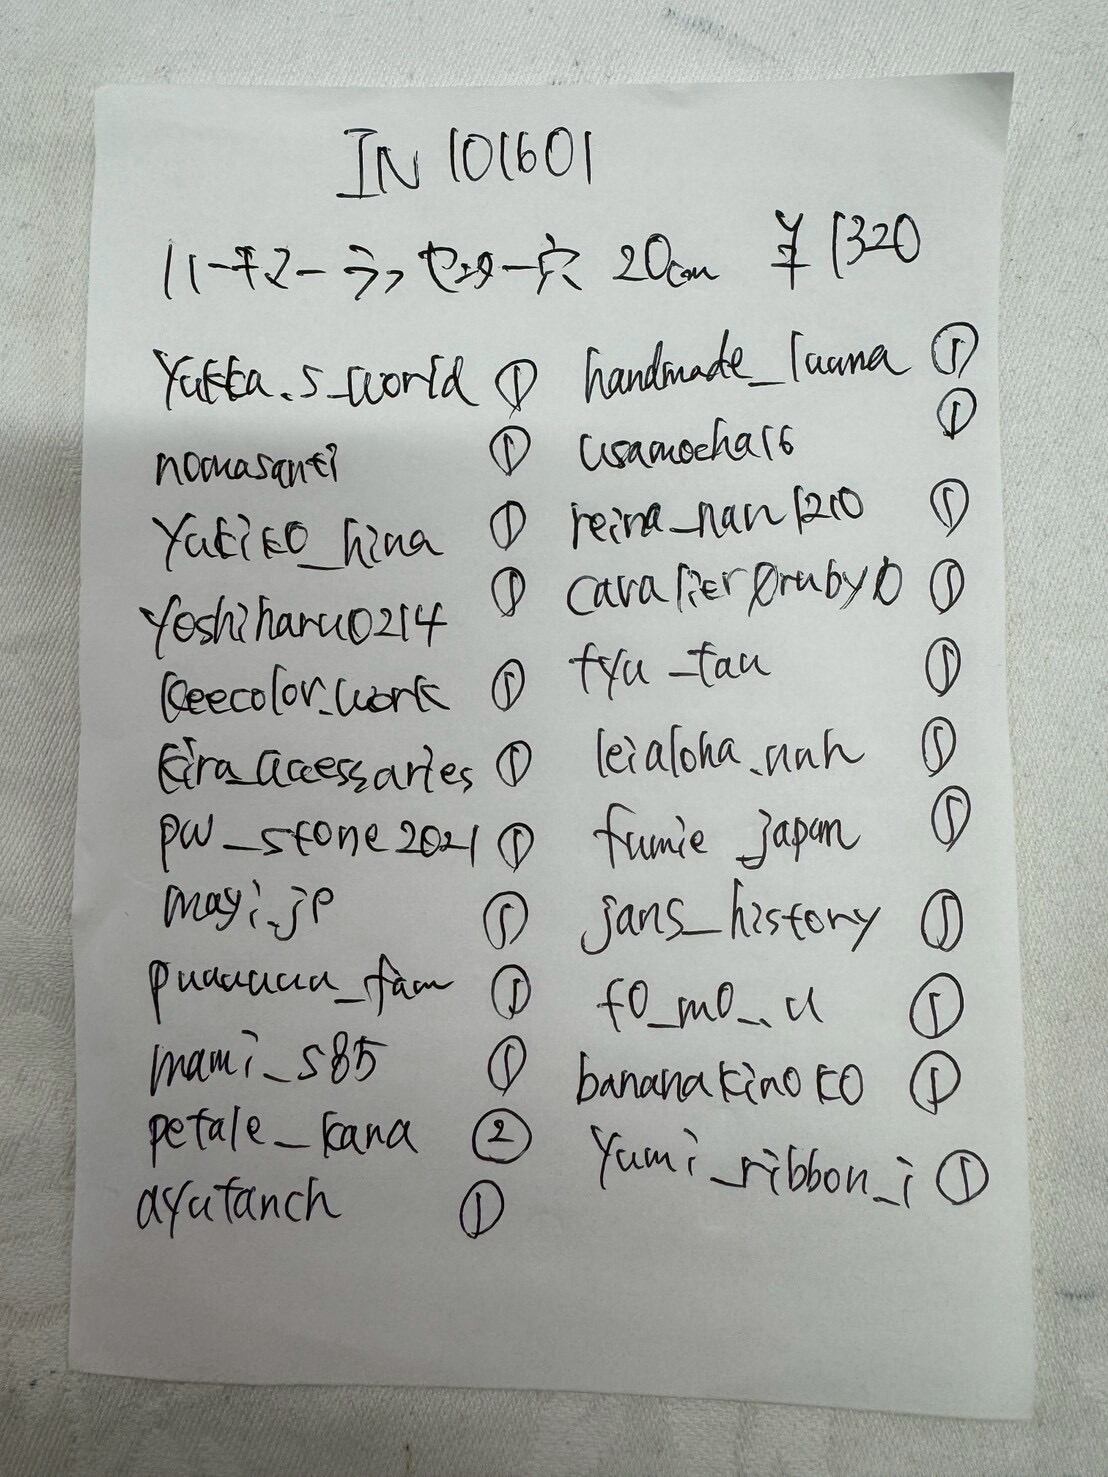 IN 101601
ハーキマーラフセンター穴 20cm ¥1320
yukka.s_world ①
nomasanti ①
yukiko_hina ①
yoshiharu0214 ①
keecolor_work ①
kira_accessaries ①
pw_stone2021 ①
mayi.jp ①
puuuuuu_fam ①
mami_s85 ①
petale_kana ②
ayutanch ①
handmade_luuna ①
usamocha16 ①
reina_nan1210 ①
cavalier0ruby0 ①
fyu_tau ①
leialoha.nnh ①
fumie_japan ①
jans_history ①
fo_mo_.u ①
bananakinoko ①
yumi_ribbon_i ①